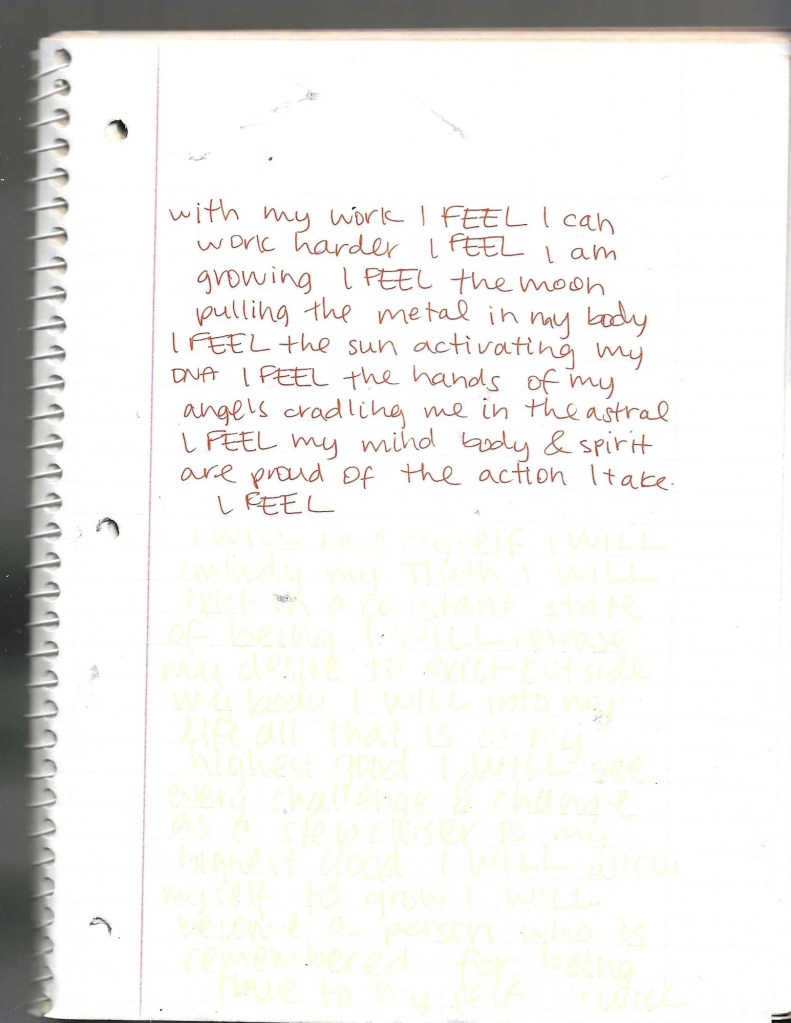 with my work I FEEL I can
work harder I FEEL I am
growing I FEEL the moon
pulling the metal in my body
I FEEL the sun activating my
DNA I FEEL the hands of my
angels cradling me in the astral
I FEEL my mind body & spirit
are proud of the action I take.
I FEEL
I WILL myself I WILL
embody my truth I WILL
exist in a constant state
of being I WILL release
my desire to exist outside
my body I WILL into my
life all that is in my
highest good I WILL see
every challenge & change
as a step closer to my
highest good I WILL allow
myself to grow I WILL
become a person who is
remembered for being
true to myself I WILL